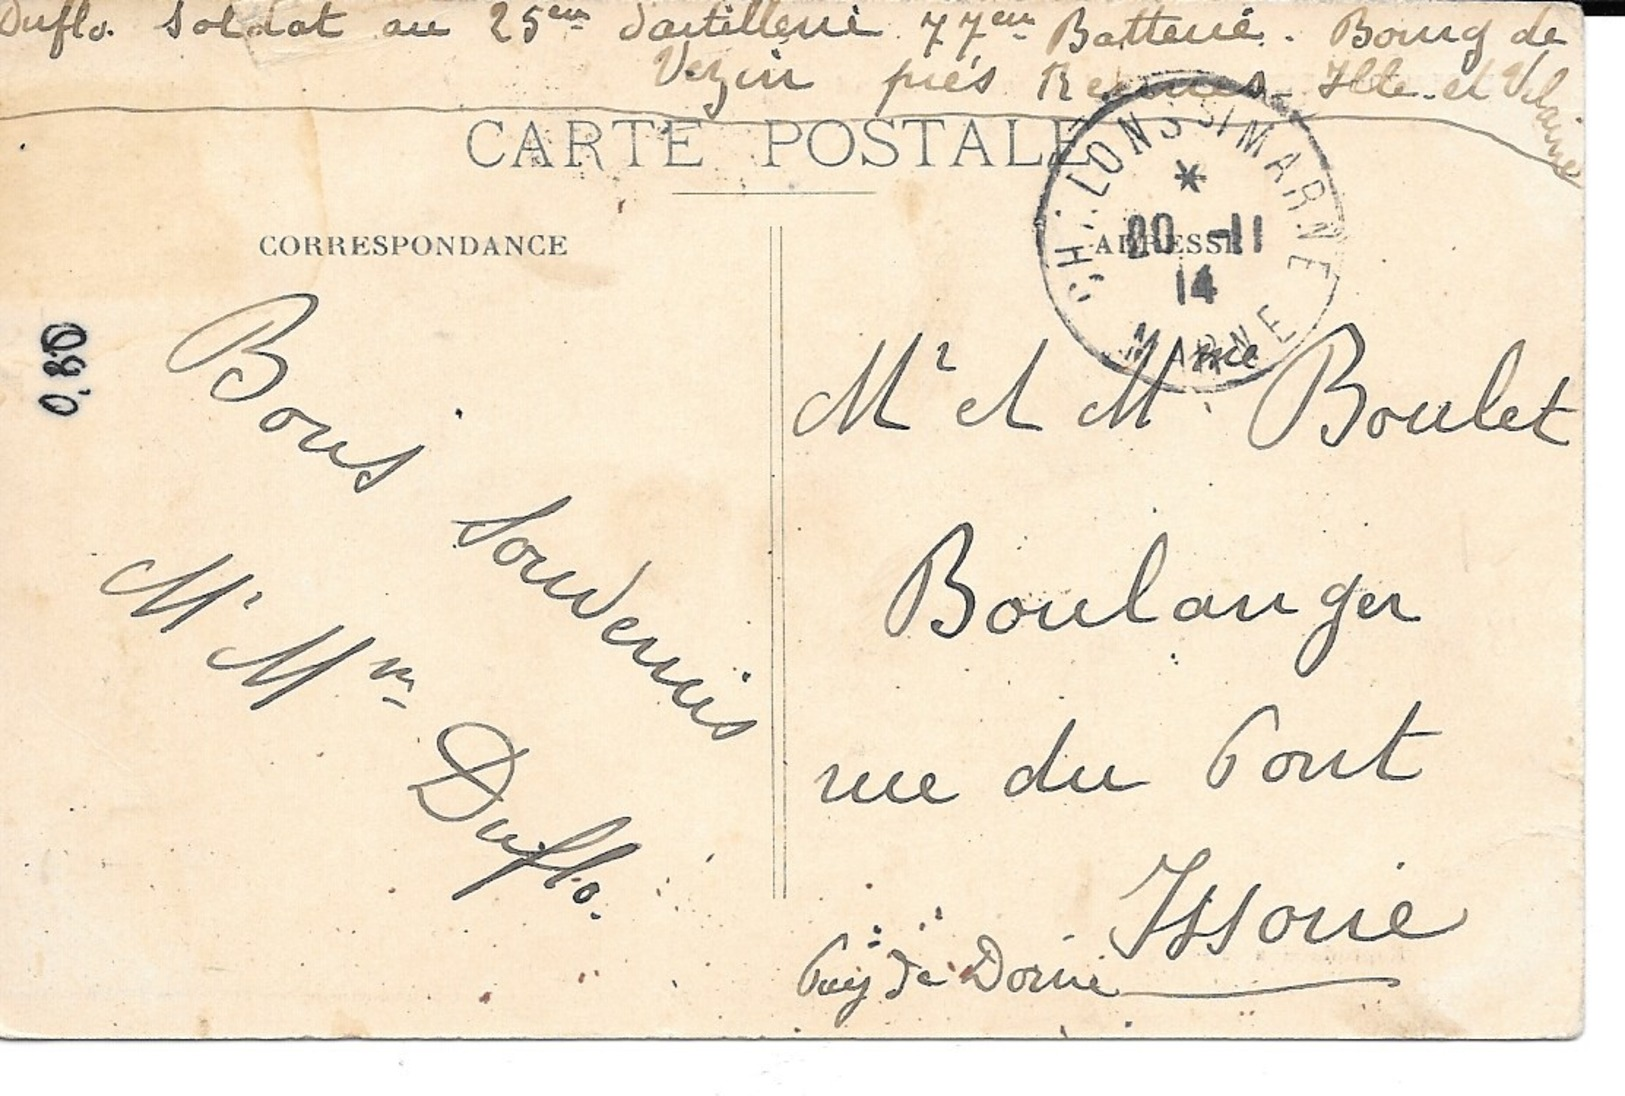 Duflo. Soldat au 25em d'artillerie 77em Batterie. Bourg de
Vezin près Rennes. Ille et Vilaine
CARTE POSTALE
CORRESPONDANCE
ADRESSE
CHALONS S/ MARNE
*
20 -11
14
MARNE
0,80
Bons
Souvenirs
Mr Mme
Duflo.
Mr et Mme Boulet
Boulanger
rue du Pont
Issoire
Puy de Dôme